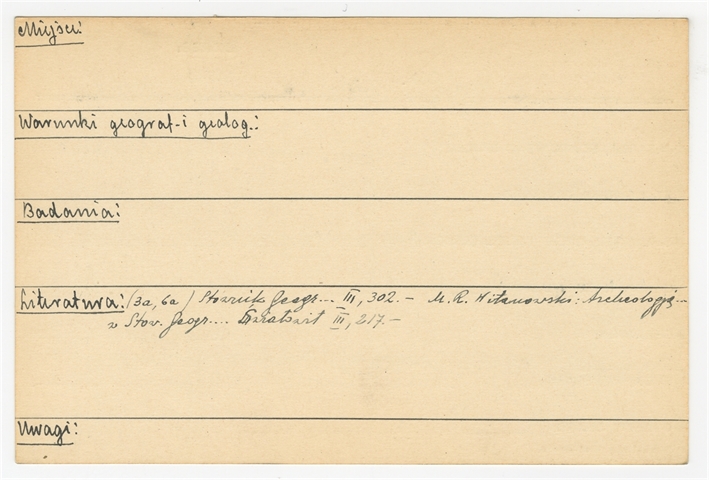 Miejsc:
Warunki geograf. i geolog.:
Badania:
Literatura: (3a, 6a) Słownik Geogr... III, 302. – M. R. Witanowski: Archeologja...
z Słow. Geogr.... Światowit III, 217. –
Uwagi: